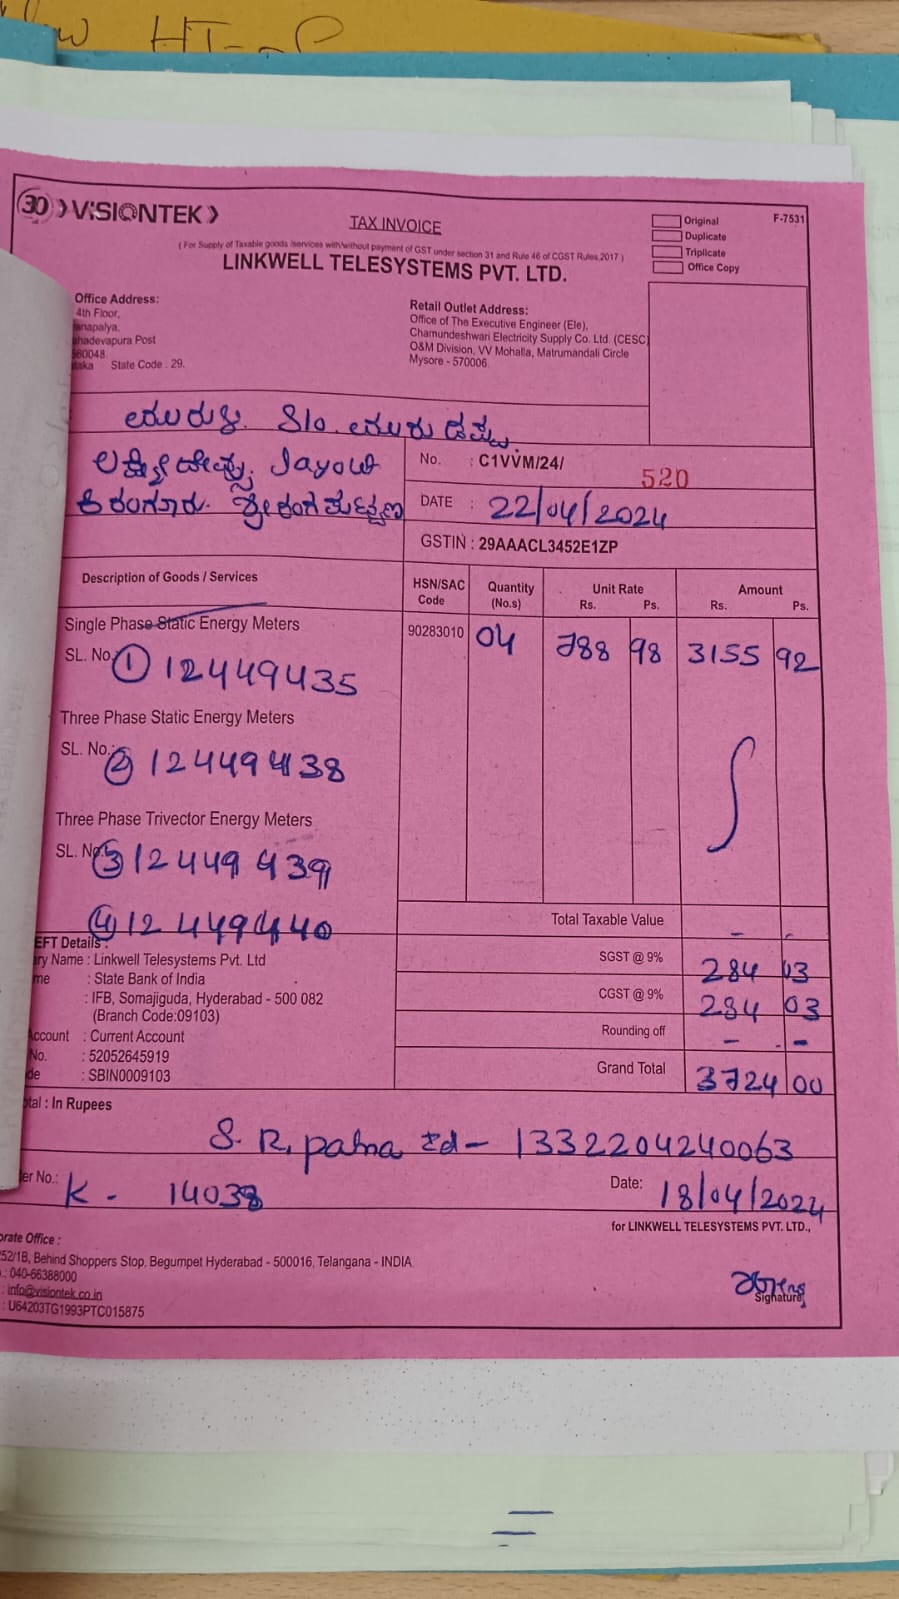 30 VISIONTEK
TAX INVOICE
Original
Duplicate
Triplicate
Office Copy
F-7531
( For Supply of Taxable goods /services with/without payment of GST under section 31 and Rule 46 of CGST Rules,2017 )
LINKWELL TELESYSTEMS PVT. LTD.
Office Address:
4th Floor,
anapalya,
ahadevapura Post
560048.
taka State Code : 29.
Retail Outlet Address:
Office of The Executive Engineer (Ele),
Chamundeshwari Electricity Supply Co. Ltd. (CESC)
O&M Division, VV Mohalla, Matrumandali Circle
Mysore - 570006.
S/o.
Layout
No. : C1VVM/24/ 520
DATE : 22/04/2024
GSTIN : 29AAACL3452E1ZP
Description of Goods / Services
HSN/SAC Code
Quantity (No.s)
Unit Rate
Rs. Ps.
Amount
Rs. Ps.
Single Phase Static Energy Meters 90283010 04 788 98 3155 92
SL. No. ① 12449435
Three Phase Static Energy Meters
SL. No.: ② 12449438
Three Phase Trivector Energy Meters
SL. No. ③ 12449439
④ 12449440
Total Taxable Value - -
SGST @ 9% 284 03
CGST @ 9% 284 03
Rounding off - -
Grand Total 3724 00
EFT Details :
ry Name : Linkwell Telesystems Pvt. Ltd
me : State Bank of India
: IFB, Somajiguda, Hyderabad - 500 082
(Branch Code:09103)
Account : Current Account
No. : 52052645919
de : SBIN0009103
tal : In Rupees
S. R. patna 1332204240063
er No.: K - 14038 Date: 18/04/2024
for LINKWELL TELESYSTEMS PVT. LTD.,
orate Office :
252/1B, Behind Shoppers Stop, Begumpet Hyderabad - 500016, Telangana - INDIA
: 040-66388000
: info@visiontek.co.in
: U64203TG1993PTC015875
Signature